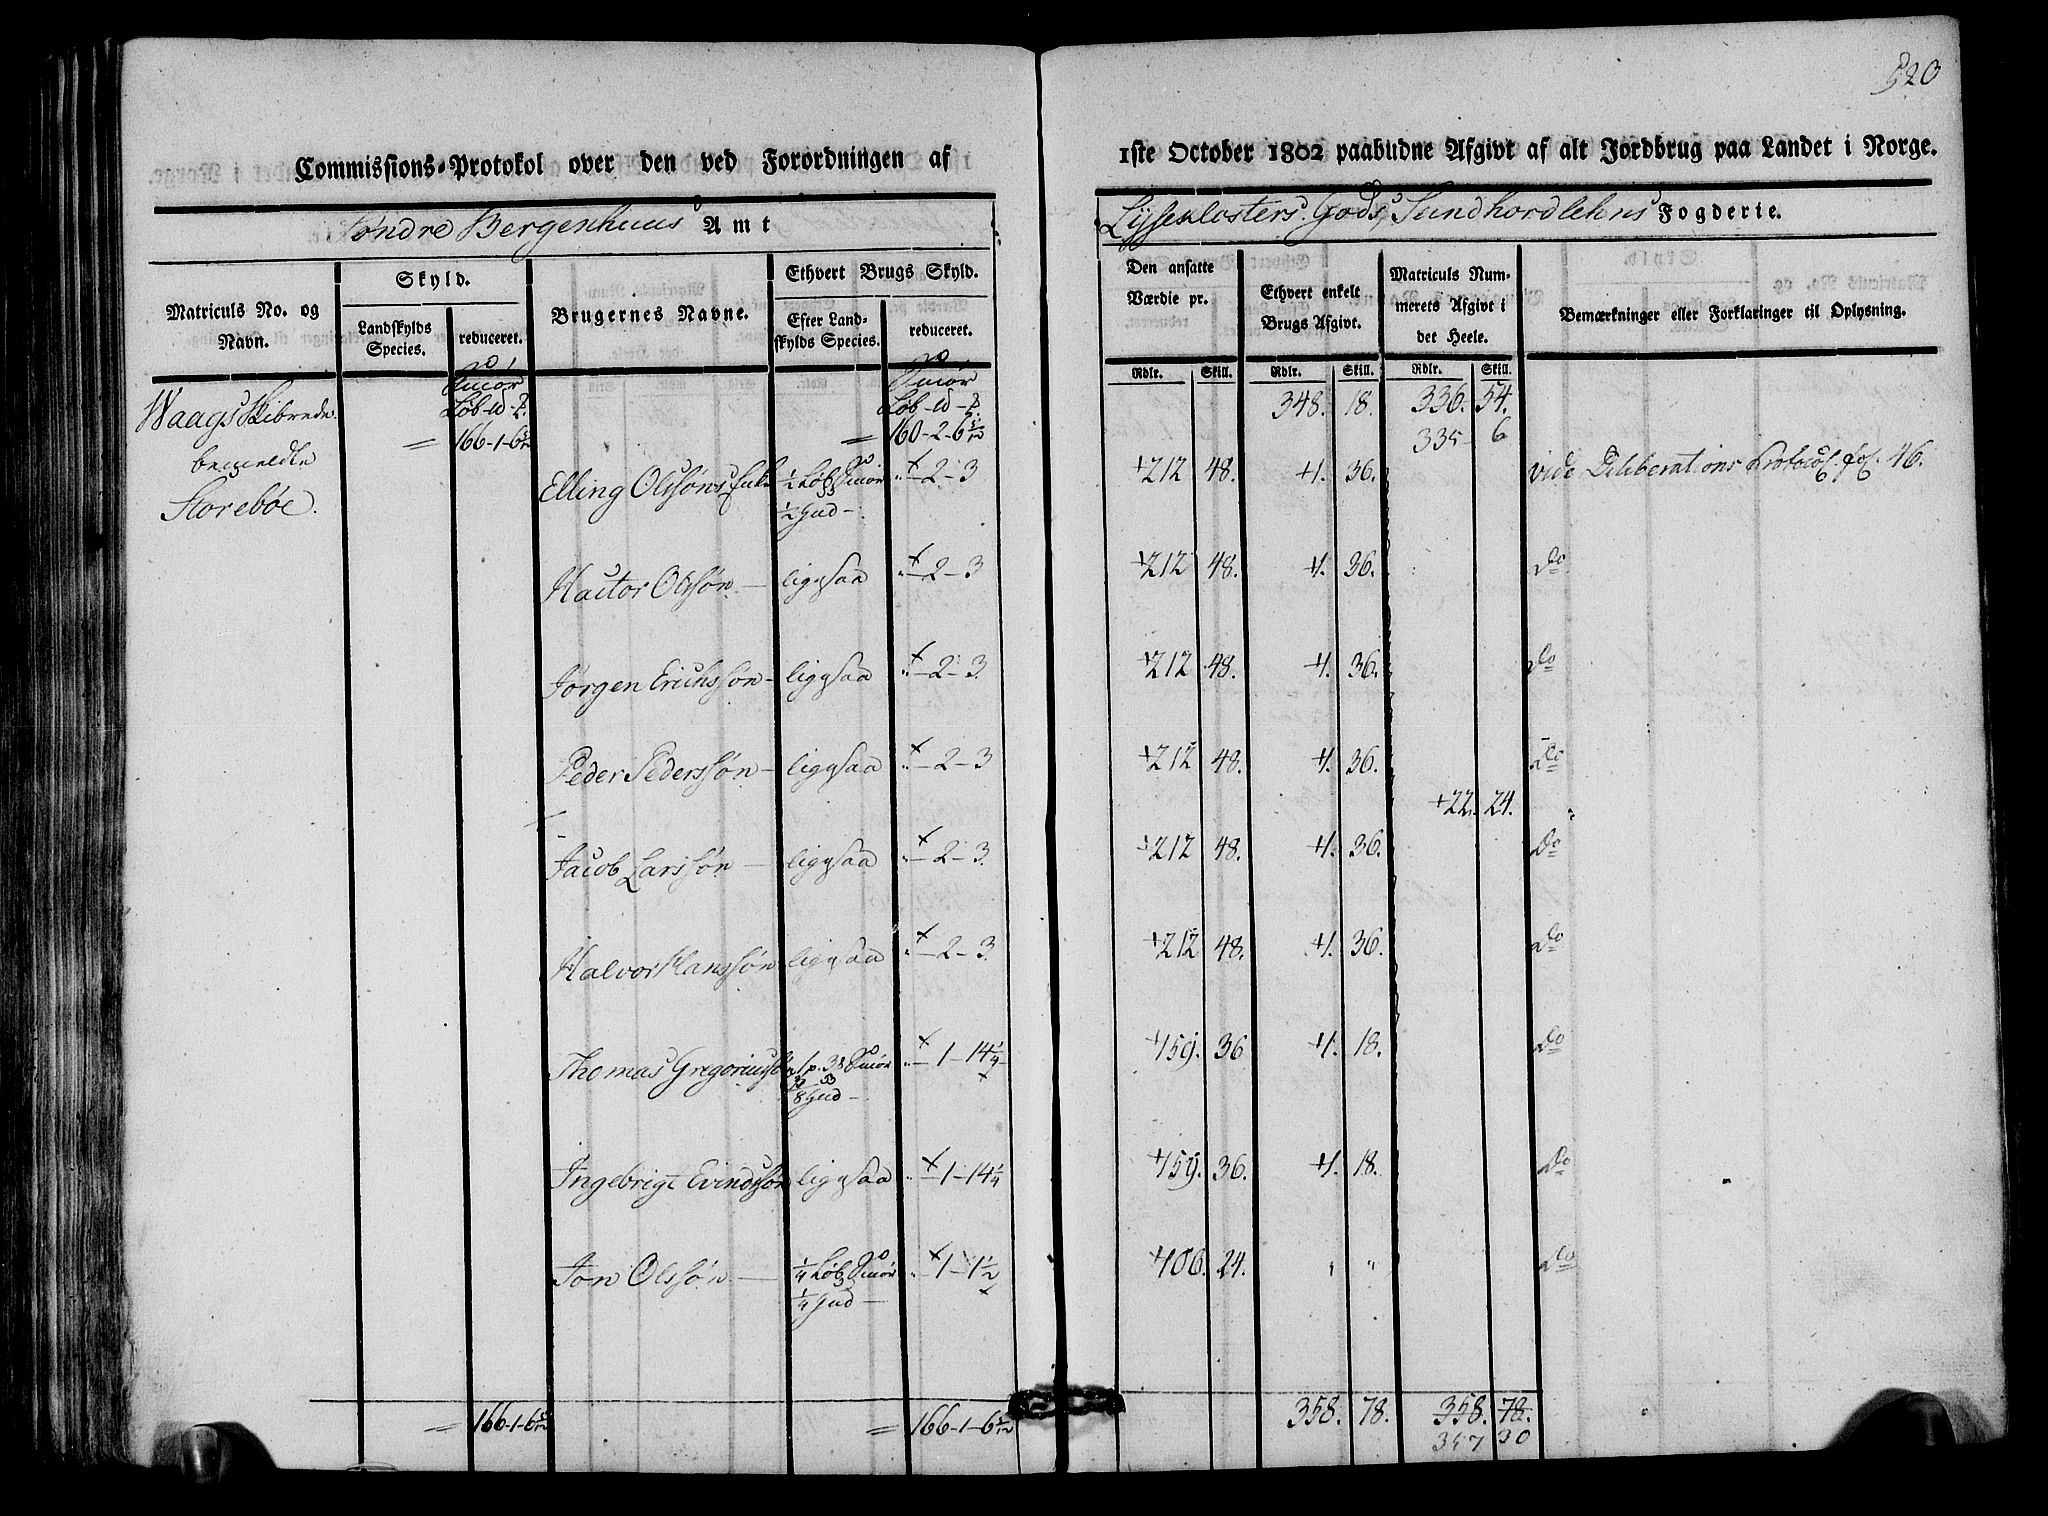 520
Commissions-Protokol over den ved Forordningen af
1ste October 1802 paabudne Afgivt af alt Jordbrug paa Landet i Norge.
Søndre Bergenhuus Amt
Lyseklosters Gods, Sundhordlehns Fogderie.
Matriculs No. og Navn.
Skyld.
Landskylds Species.
reduceret.
Brugernes Navne.
Ethvert Brugs Skyld.
Efter Landskylds Species.
reduceret.
Den ansatte Værdie pr.
Ethvert enkelt Brugs Afgivt.
Matriculs Nummerets Afgivt i det Heele.
Bemærkninger eller Forklaringer til Oplysning.
Rdlr. Skill. Rdlr. Skill. Rdlr. Skill.
Smør Smør
Waags Skibrede Løb - Løb - 348. 18. 336. 54.
= 166-1-6 5/12 = 160-2-6 5/12 335- 6
bemeldte
Storebøe.
Elling Olssøns Enke ½ Løb Smør "-2-3 212 48. 1. 36. vide Deliberations Protocol. fol. 46.
½ Hud -
Hactor Olssøn - ligesaa "-2-3 212 48. 1. 36. Do
Jørgen Erichssøn - ligesaa "-2-3. 212 48. 1. 36. Do
Peder Pederssøn - ligesaa "-2-3 212 48. 1. 36. Do
+22. 24.
Jacob Larssøn - ligesaa "-2-3. 212 48. 1. 36. Do
Halvor Hanssøn ligesaa "-2-3. 212 48. 1. 36. Do
Thomas Gregoriussøn 1 p. 3 Smør "-1-14¼ 159. 36 1. 18. Do
Hud -
Ingebrigt Evindssøn ligesaa "-1-14¼ 159. 36. 1. 18. Do
Jon Olssøn - ¼ Løb Smør "-1-1½ 106. 24. " " Do
¼ Hud -
= 166-1-6 5/12 = 166-1-6 5/12 358. 78. 358. 78.
357 30